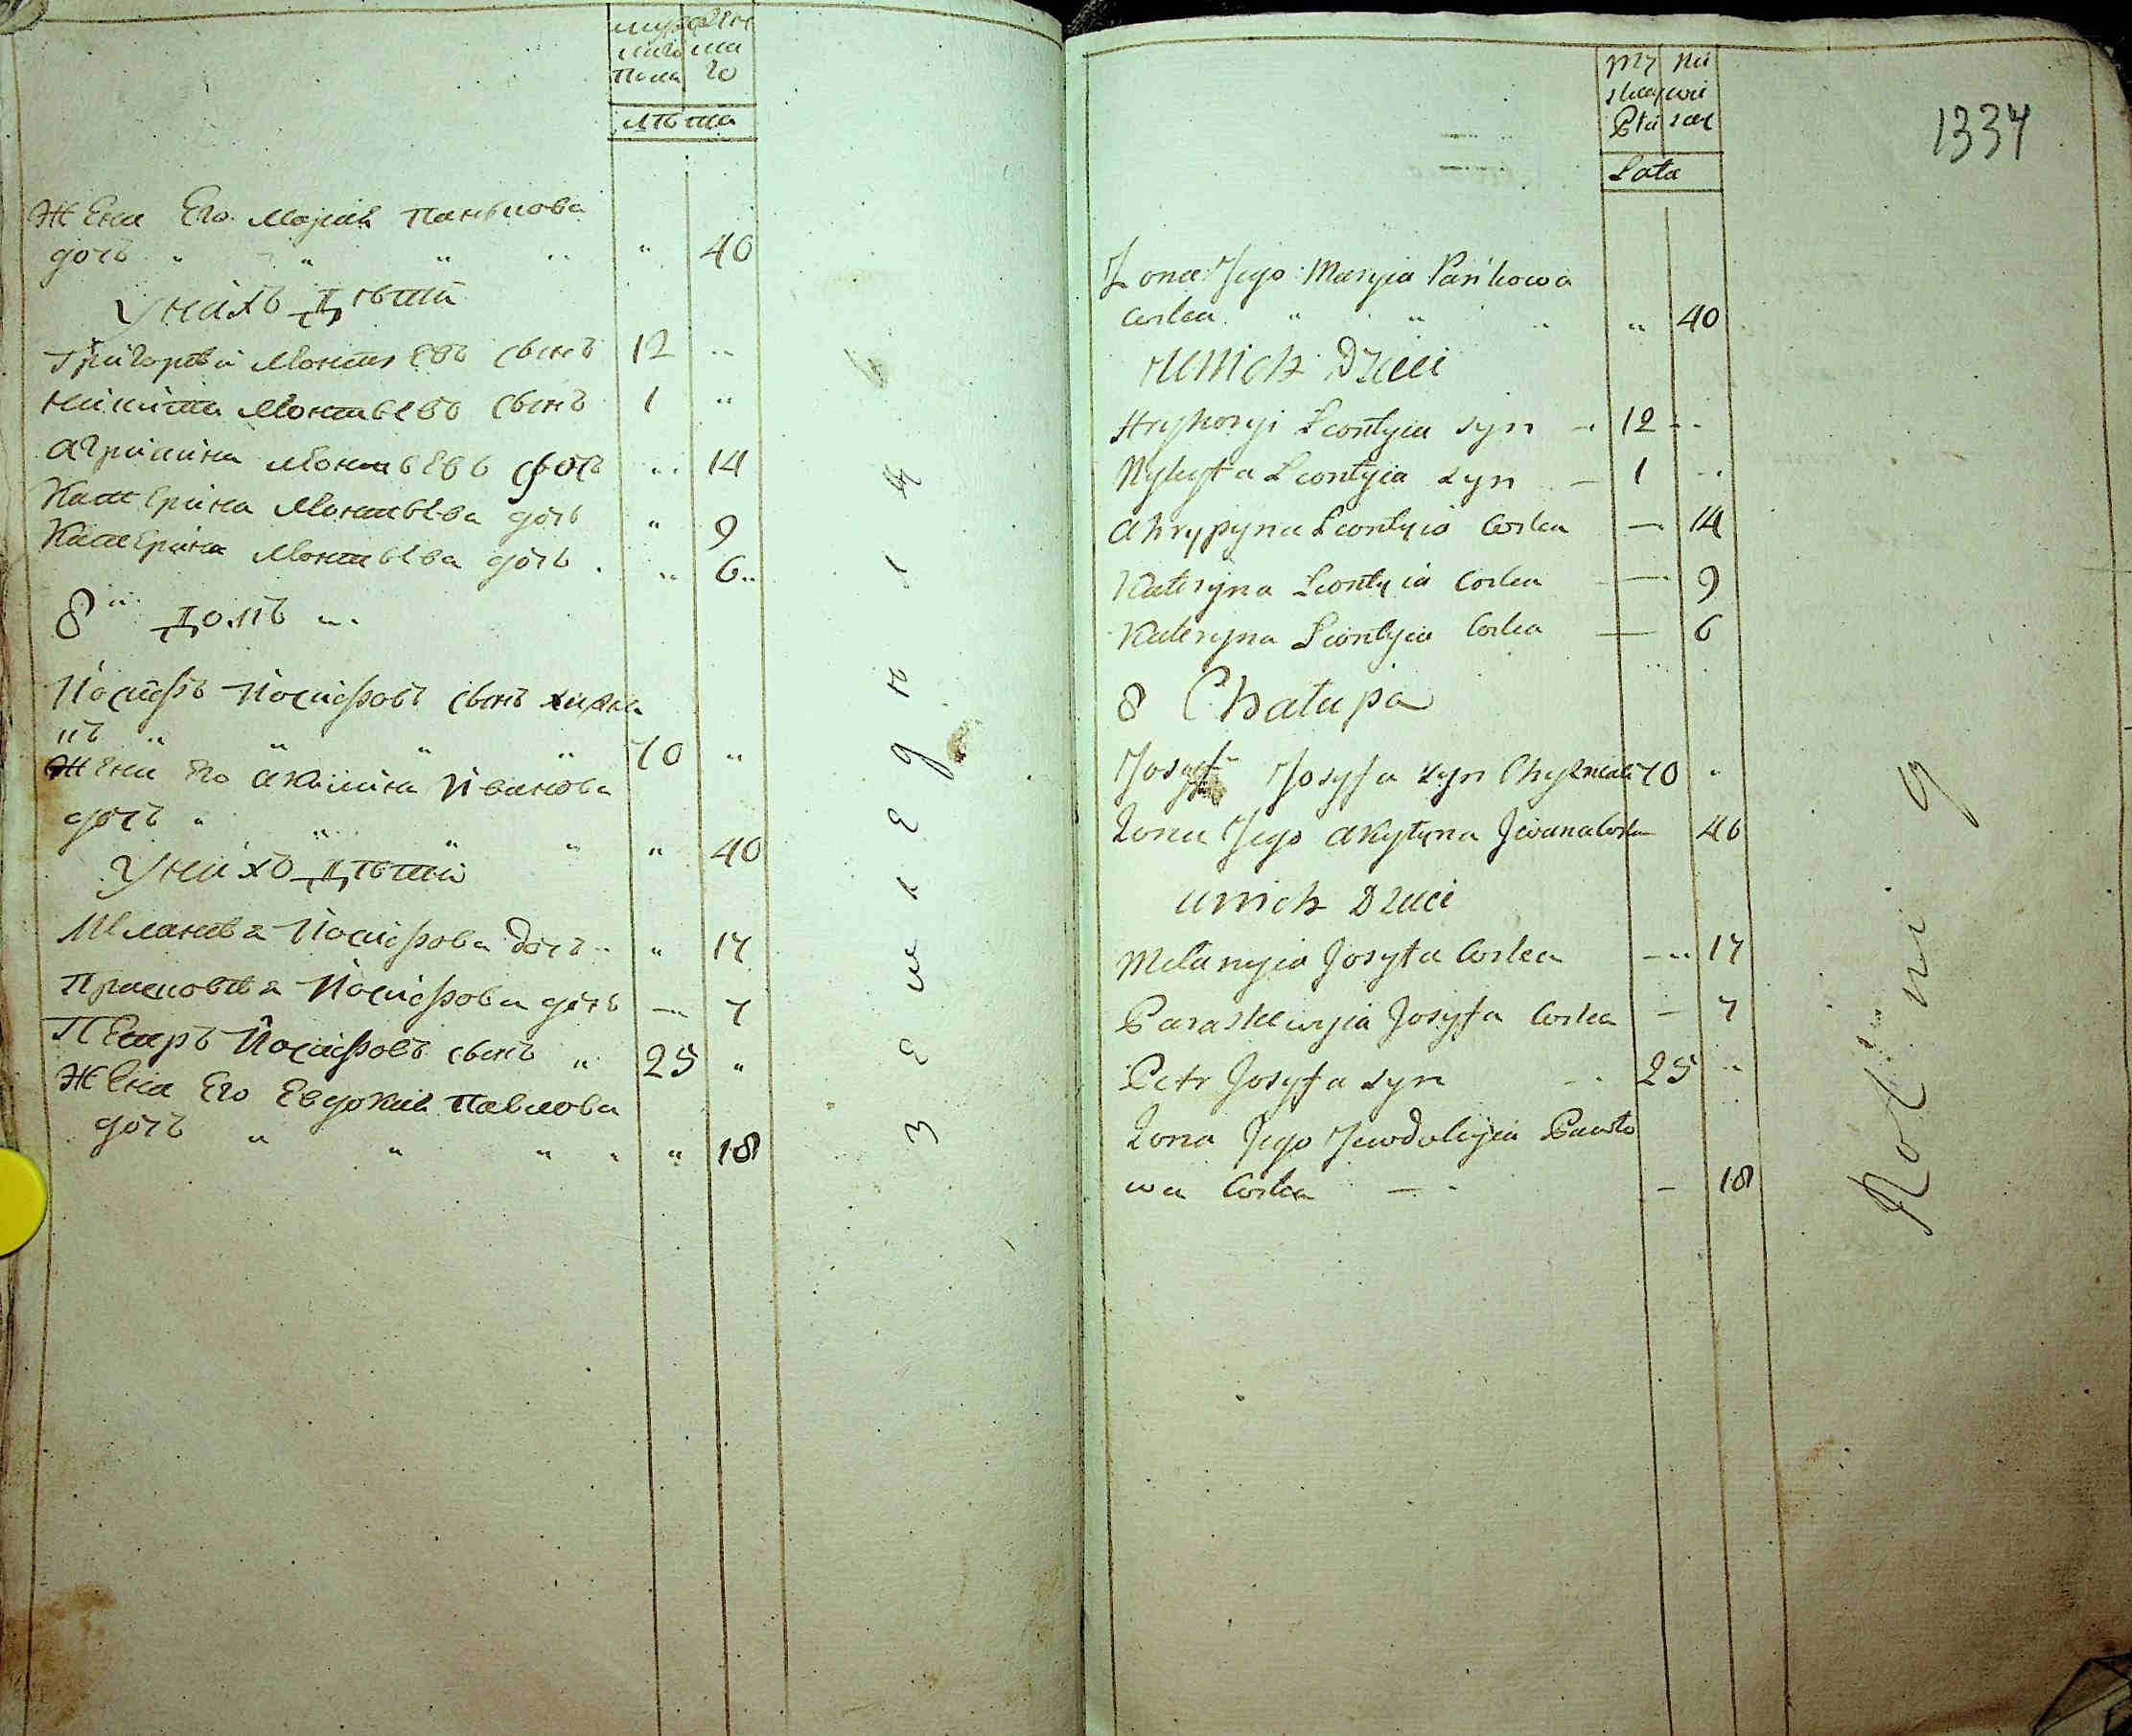 лѣта
Жена Его Марія Панькова
дочь " " " " " 40
У нихъ Дѣти
Григорѣй Леонтьевъ сынъ 12 "
Никита Леонтьевъ сынъ 1 "
Агрипина Леонтьева дочь " 14
Катерина Леонтьева дочь " 9
Катерина Леонтьева дочь " 6
8й Домъ
Йосифъ Йосифовъ сынъ
" " " " 70 "
Жена Его Акилина Иванова
дочь " " " " " 40
У нихъ Дѣти
Меланѣя Йосифова дочь " 17
Прасковѣя Йосифова дочь — 7
Петръ Йосифовъ сынъ " 25 "
Жена Его Евдокия Павлова
дочь " " " " " 18
1337
Lata
Zona Jego Maryia Pańkowa
corka " " " " 40
u nich Dzieci
Hryhoryi Leontyia syn — 12 "
Nykyta Leontyia syn — 1 "
Ahrypyna Leontyia Corka — 14
Kateryna Leontyia Corka — 9
Kateryna Leontyia Corka — 6
8 Chatupa
Josyf Josyfa syn 70 "
Zona Jego Akylyna Iwana Corka 40
u nich Dzieci
Melanyia Josyfa Corka — 17
Paraskewyia Josyfa Corka — 7
Petr Josyfa syn — 25 "
Zona Jego Jewdokyia Pawło
wa Corka — — 18